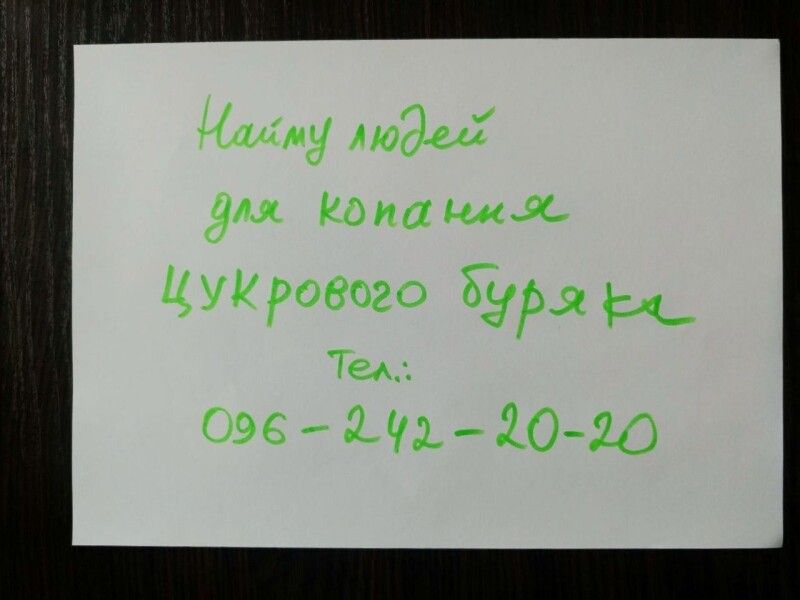 Найму людей
для копання
цукрового буряка
Тел.:
096-242-20-20